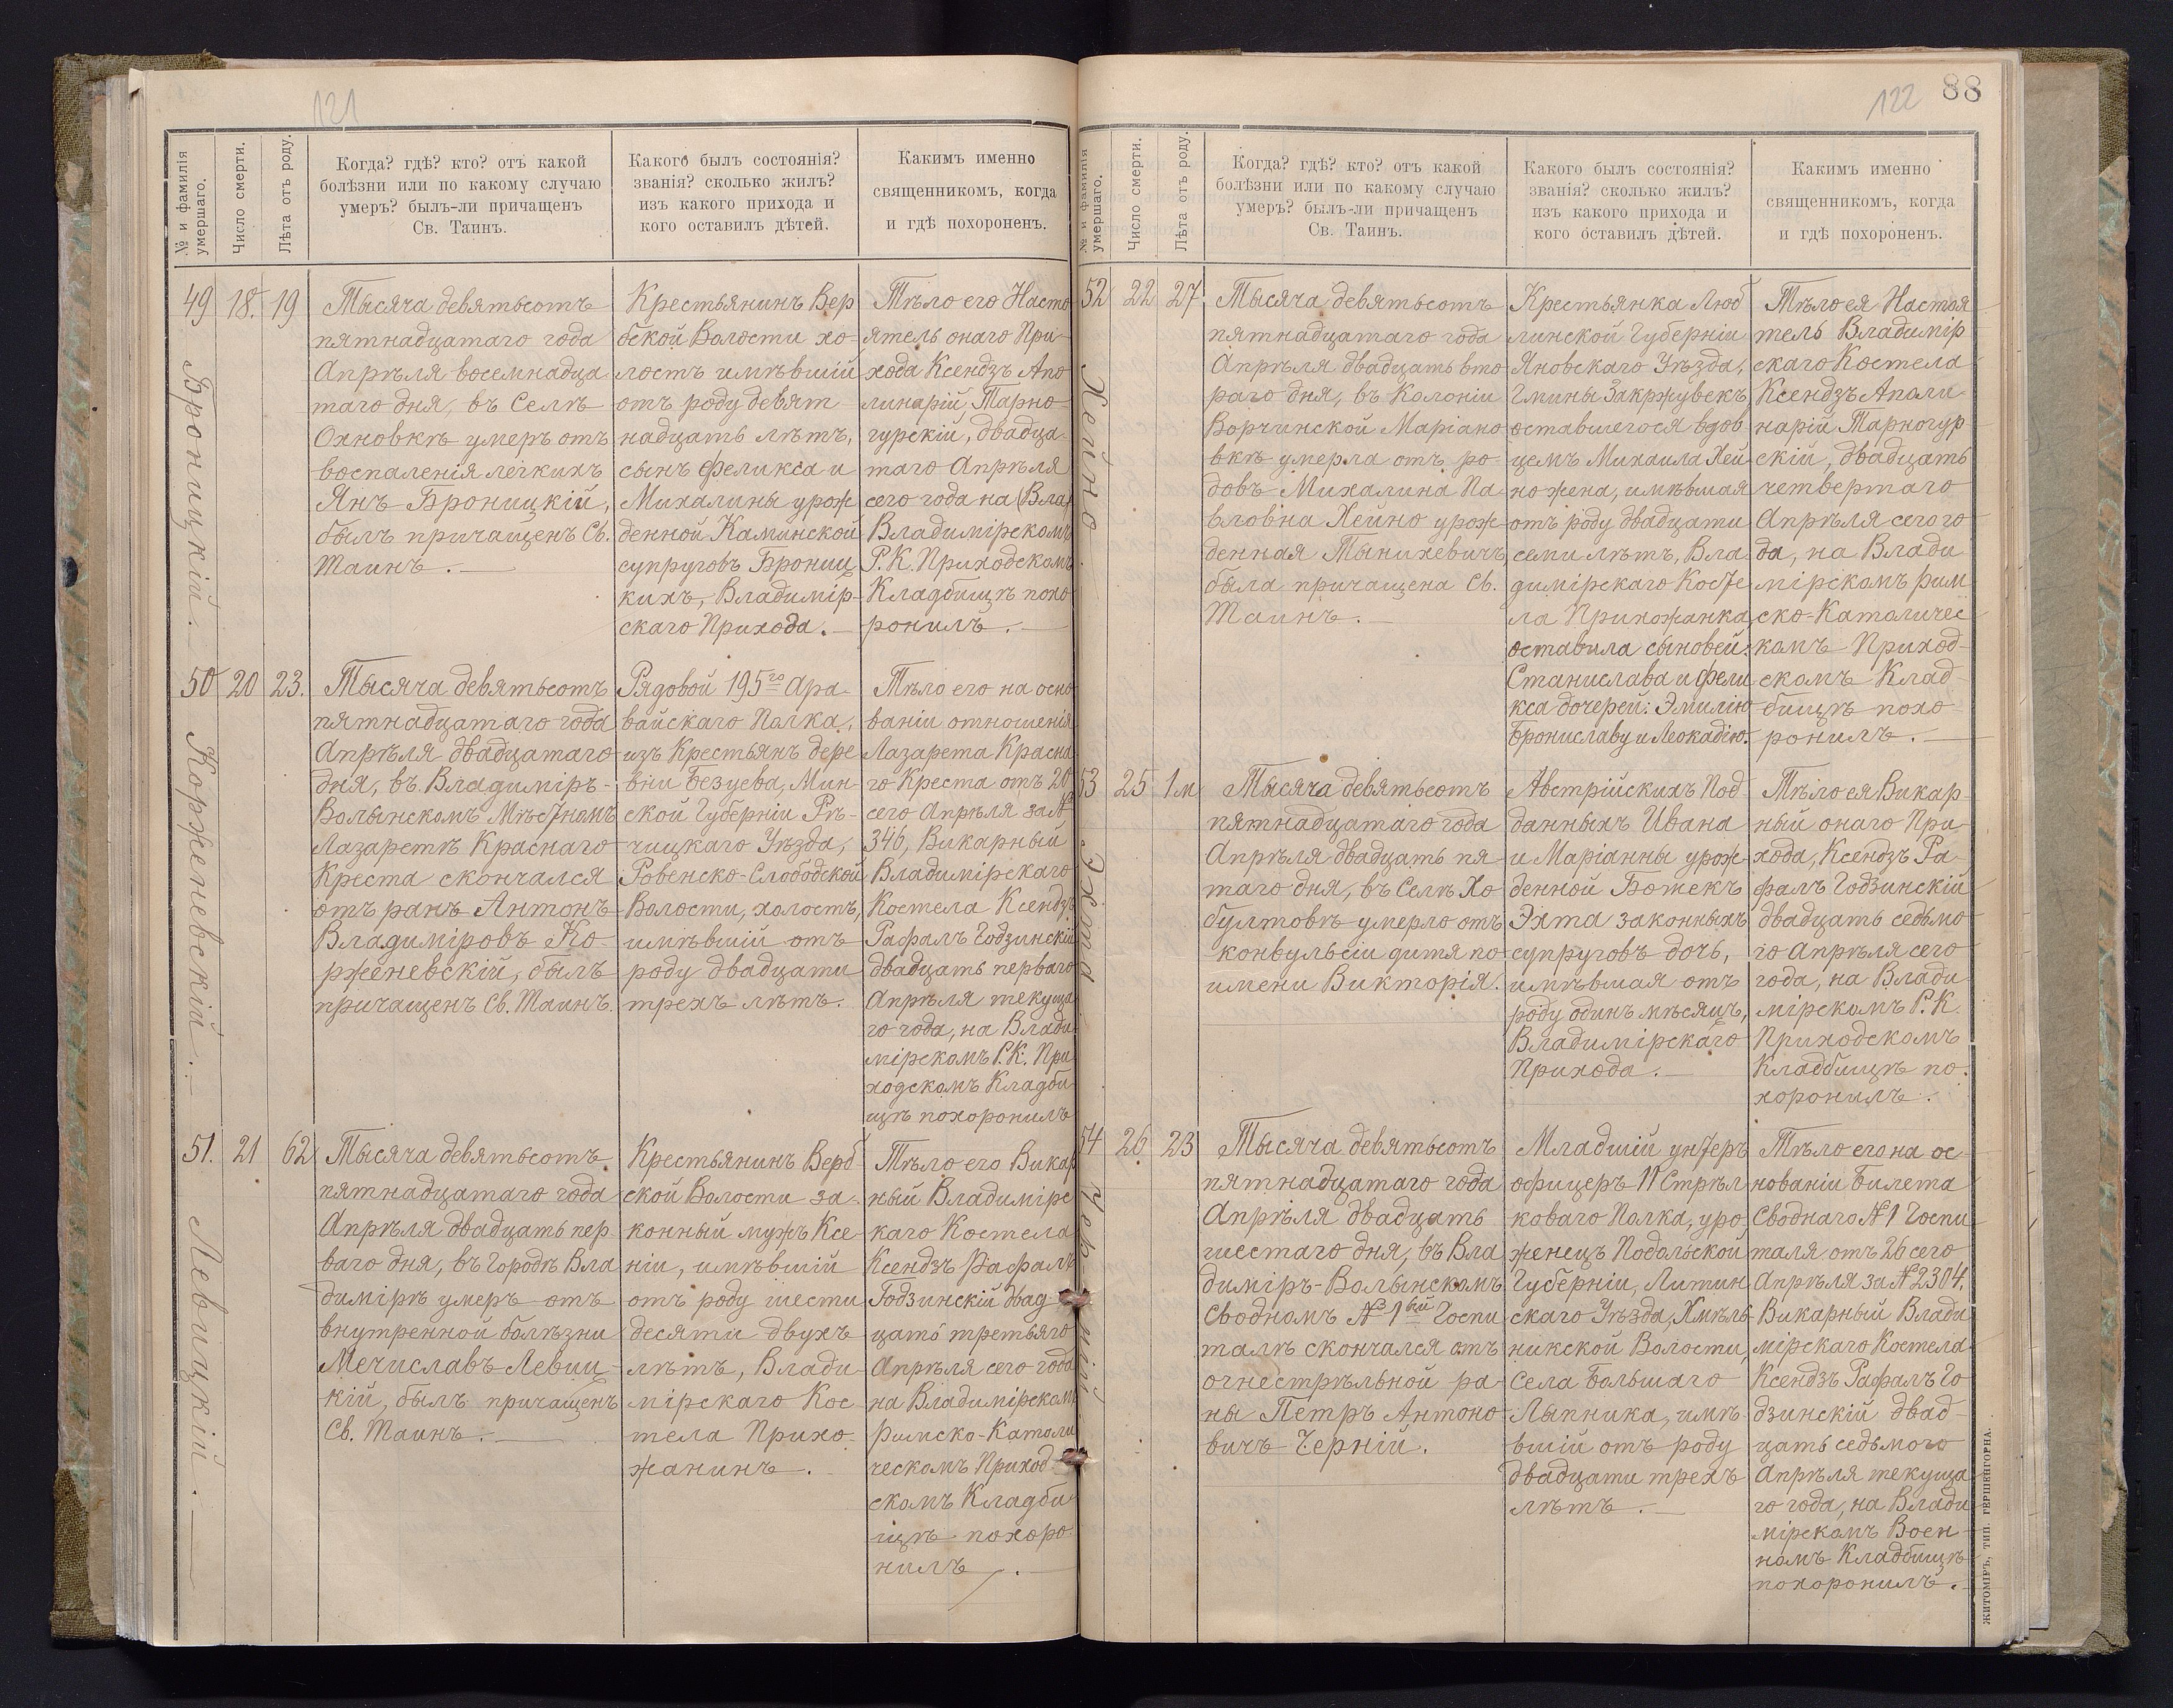 121
№ и фамилія
умершаго.
Число смерти.
Лѣта отъ роду.
Когда? гдѣ? кто? отъ какой
болѣзни или по какому случаю
умеръ? былъ-ли причащенъ
Св. Таинъ.
Какого былъ состоянія?
званія? сколько жилъ?
изъ какого прихода и
кого оставилъ дѣтей.
Какимъ именно
священникомъ, когда
и гдѣ похороненъ.
49
Броницкій.
18.
19
Тысяча девятьсотъ
пятнадцатаго года
Апрѣля восемнадца
таго дня, въ Селѣ
Охновкѣ умеръ отъ
воспаленія легкихъ
Янъ Броницкій,
былъ причащенъ Св.
Таинъ.
Крестьянинъ Вер
бской Волости хо-
лостъ имѣвшій
отъ роду девят
надцать лѣтъ,
сынъ Феликса и
Михалины урож
денной Каминской
супруговъ Брониц
кихъ, Владимір-
скаго Прихода.
Тѣло его Насто
ятель онаго При
хода Ксендзъ Апо
линарій Тарно-
гурскій, двадца-
таго Апрѣля
сего года на (Вла)
Владимірскомъ
Р. К. Приходскомъ
Кладбищѣ похо
ронилъ.
50
Корженевскій.
20
23.
Тысяча девятьсотъ
пятнадцатаго года
Апрѣля двадцатаго
дня, въ Владиміръ-
Волынскомъ Мѣстномъ
Лазаретѣ Краснаго
Креста скончался
отъ ранъ Антонъ
Владиміровъ Ко-
рженевскій, былъ
причащенъ Св. Таинъ.
Рядовой 195го Ора-
вайскаго Полка,
изъ Крестьянъ дере
вни Безуева, Мин-
ской Губерніи Рѣ-
чицкаго Уѣзда,
Ровенско-Слободской
Волости, холостъ,
имѣвшій отъ
роду двадцати
трехъ лѣтъ.
Тѣло его на осно
ваніи отношенія
Лазарета Красна
го Креста отъ 20
сего Апрѣля за №
346, Викарный
Владимірскаго
Костела Ксендзъ
Рафалъ Годзинскій
двадцать перваго
Апрѣля текуща
го года, на Влади
мірскомъ Р. К. При
ходскомъ Кладби
щѣ похоронилъ
51.
Левицкій.
21
62
Тысяча девятьсотъ
пятнадцатаго года
Апрѣля двадцать пер
ваго дня, въ Городѣ Вла
димірѣ умеръ отъ
внутренной болѣзни
Мечиславъ Левиц
кій, былъ причащенъ
Св. Таинъ.
Крестьянинъ Верб
ской Волости за-
конный мужъ Ксе-
ніи, имѣвшій
отъ роду шести
десяти двухъ
лѣтъ, Влади-
мірскаго Кос
тела Прихо-
жанинъ.
Тѣло его Викар
ный Владимірс
каго Костела
Ксендзъ Рафалъ
Годзинскій двад
цать третьяго
Апрѣля сего года
на Владимірскомъ
Римско-Католи
ческомъ Приход-
скомъ Кладби
щѣ похоро-
нилъ.
122
88
№ и фамилія
умершаго.
Число смерти.
Лѣта отъ роду.
Когда? гдѣ? кто? отъ какой
болѣзни или по какому случаю
умеръ? былъ-ли причащенъ
Св. Таинъ.
Какого былъ состоянія?
званія? сколько жилъ?
изъ какого прихода и
кого оставилъ дѣтей.
Какимъ именно
священникомъ, когда
и гдѣ похороненъ.
52
Хейно
22
27
Тысяча девятьсотъ
пятнадцатаго года
Апрѣля двадцать вто
раго дня, въ Колоніи
Ворчинской Маріано
вкѣ умерла отъ ро-
довъ Михалина Па-
вловна Хейно урож-
денная Тынихевичъ,
была причащена Св.
Таинъ.
Крестьянка Люб
линской Губерніи
Яновскаго Уѣзда,
Гмины Закржувекъ
оставшегося вдов
цемъ Михаила Хей-
но жена, имѣвшая
отъ роду двадцати
семи лѣтъ, Вла-
димірскаго Косте
ла Прихожанка,
оставила сыновей:
Станислава и Фели
кса дочерей: Эмилію
Брониславу и Леокадію.
Тѣло ея Настоя
тель Владимір
скаго Костела
Ксендзъ Аполи
нарій Тарногур
скій, двадцать
четвертаго
Апрѣля сего го
да, на Влади
мірскомъ Рим
ско-Католичес
комъ Приход-
скомъ Клад-
бищѣ похо
ронилъ.
53
Эхта
25
1 м
Тысяча девятьсотъ
пятнадцатаго года
Апрѣля двадцать пя-
таго дня, въ Селѣ Хо
бултовѣ умерло отъ
конвульсіи дитя по
имени Викторія.
Австрійскихъ Под
данныхъ Ивана
и Маріанны урож-
денной Божекъ
Эхта законныхъ
супруговъ дочь,
имѣвшая отъ
роду одинъ мѣсяцъ,
Владимірскаго
Прихода.
Тѣло ея Викар-
ный онаго При-
хода, Ксендзъ Ра-
фалъ Годзинскій
двадцать седьмо
го Апрѣля сего
года, на Влади
мірскомъ Р. К.
Приходскомъ
Кладбищѣ по-
хоронилъ.
54
Черній.
26
23
Тысяча девятьсотъ
пятнадцатаго года
Апрѣля двадцать
шестаго дня, въ Вла
диміръ-Волынскомъ
Сводномъ № 1вый Госпи
талѣ скончался отъ
огнестрѣльной ра-
ны Петръ Антоно
вичъ Черній.
Младшій унтеръ
офицеръ 11 Стрѣл
коваго Полка, уро
женецъ Подольской
Губерніи, Литин
скаго Уѣзда, Хмѣль
никской Волости,
Села Большаго
Лыпника, имѣ
вшій отъ роду
двадцати трехъ
лѣтъ.
Тѣло его на ос
нованіи Билета
Своднаго № 1 Госпи
таля отъ 26 сего
Апрѣля за № 2304,
Викарный Влади
мірскаго Костела
Ксендзъ Рафалъ Го
дзинскій двад-
цать седьмого
Апрѣля текуща
го года, на Влади
мірскомъ Воен-
номъ Кладбищѣ
похоронилъ.
ЖИТОМІРЪ, ТИП. ГЕРШЕНГОРНА.